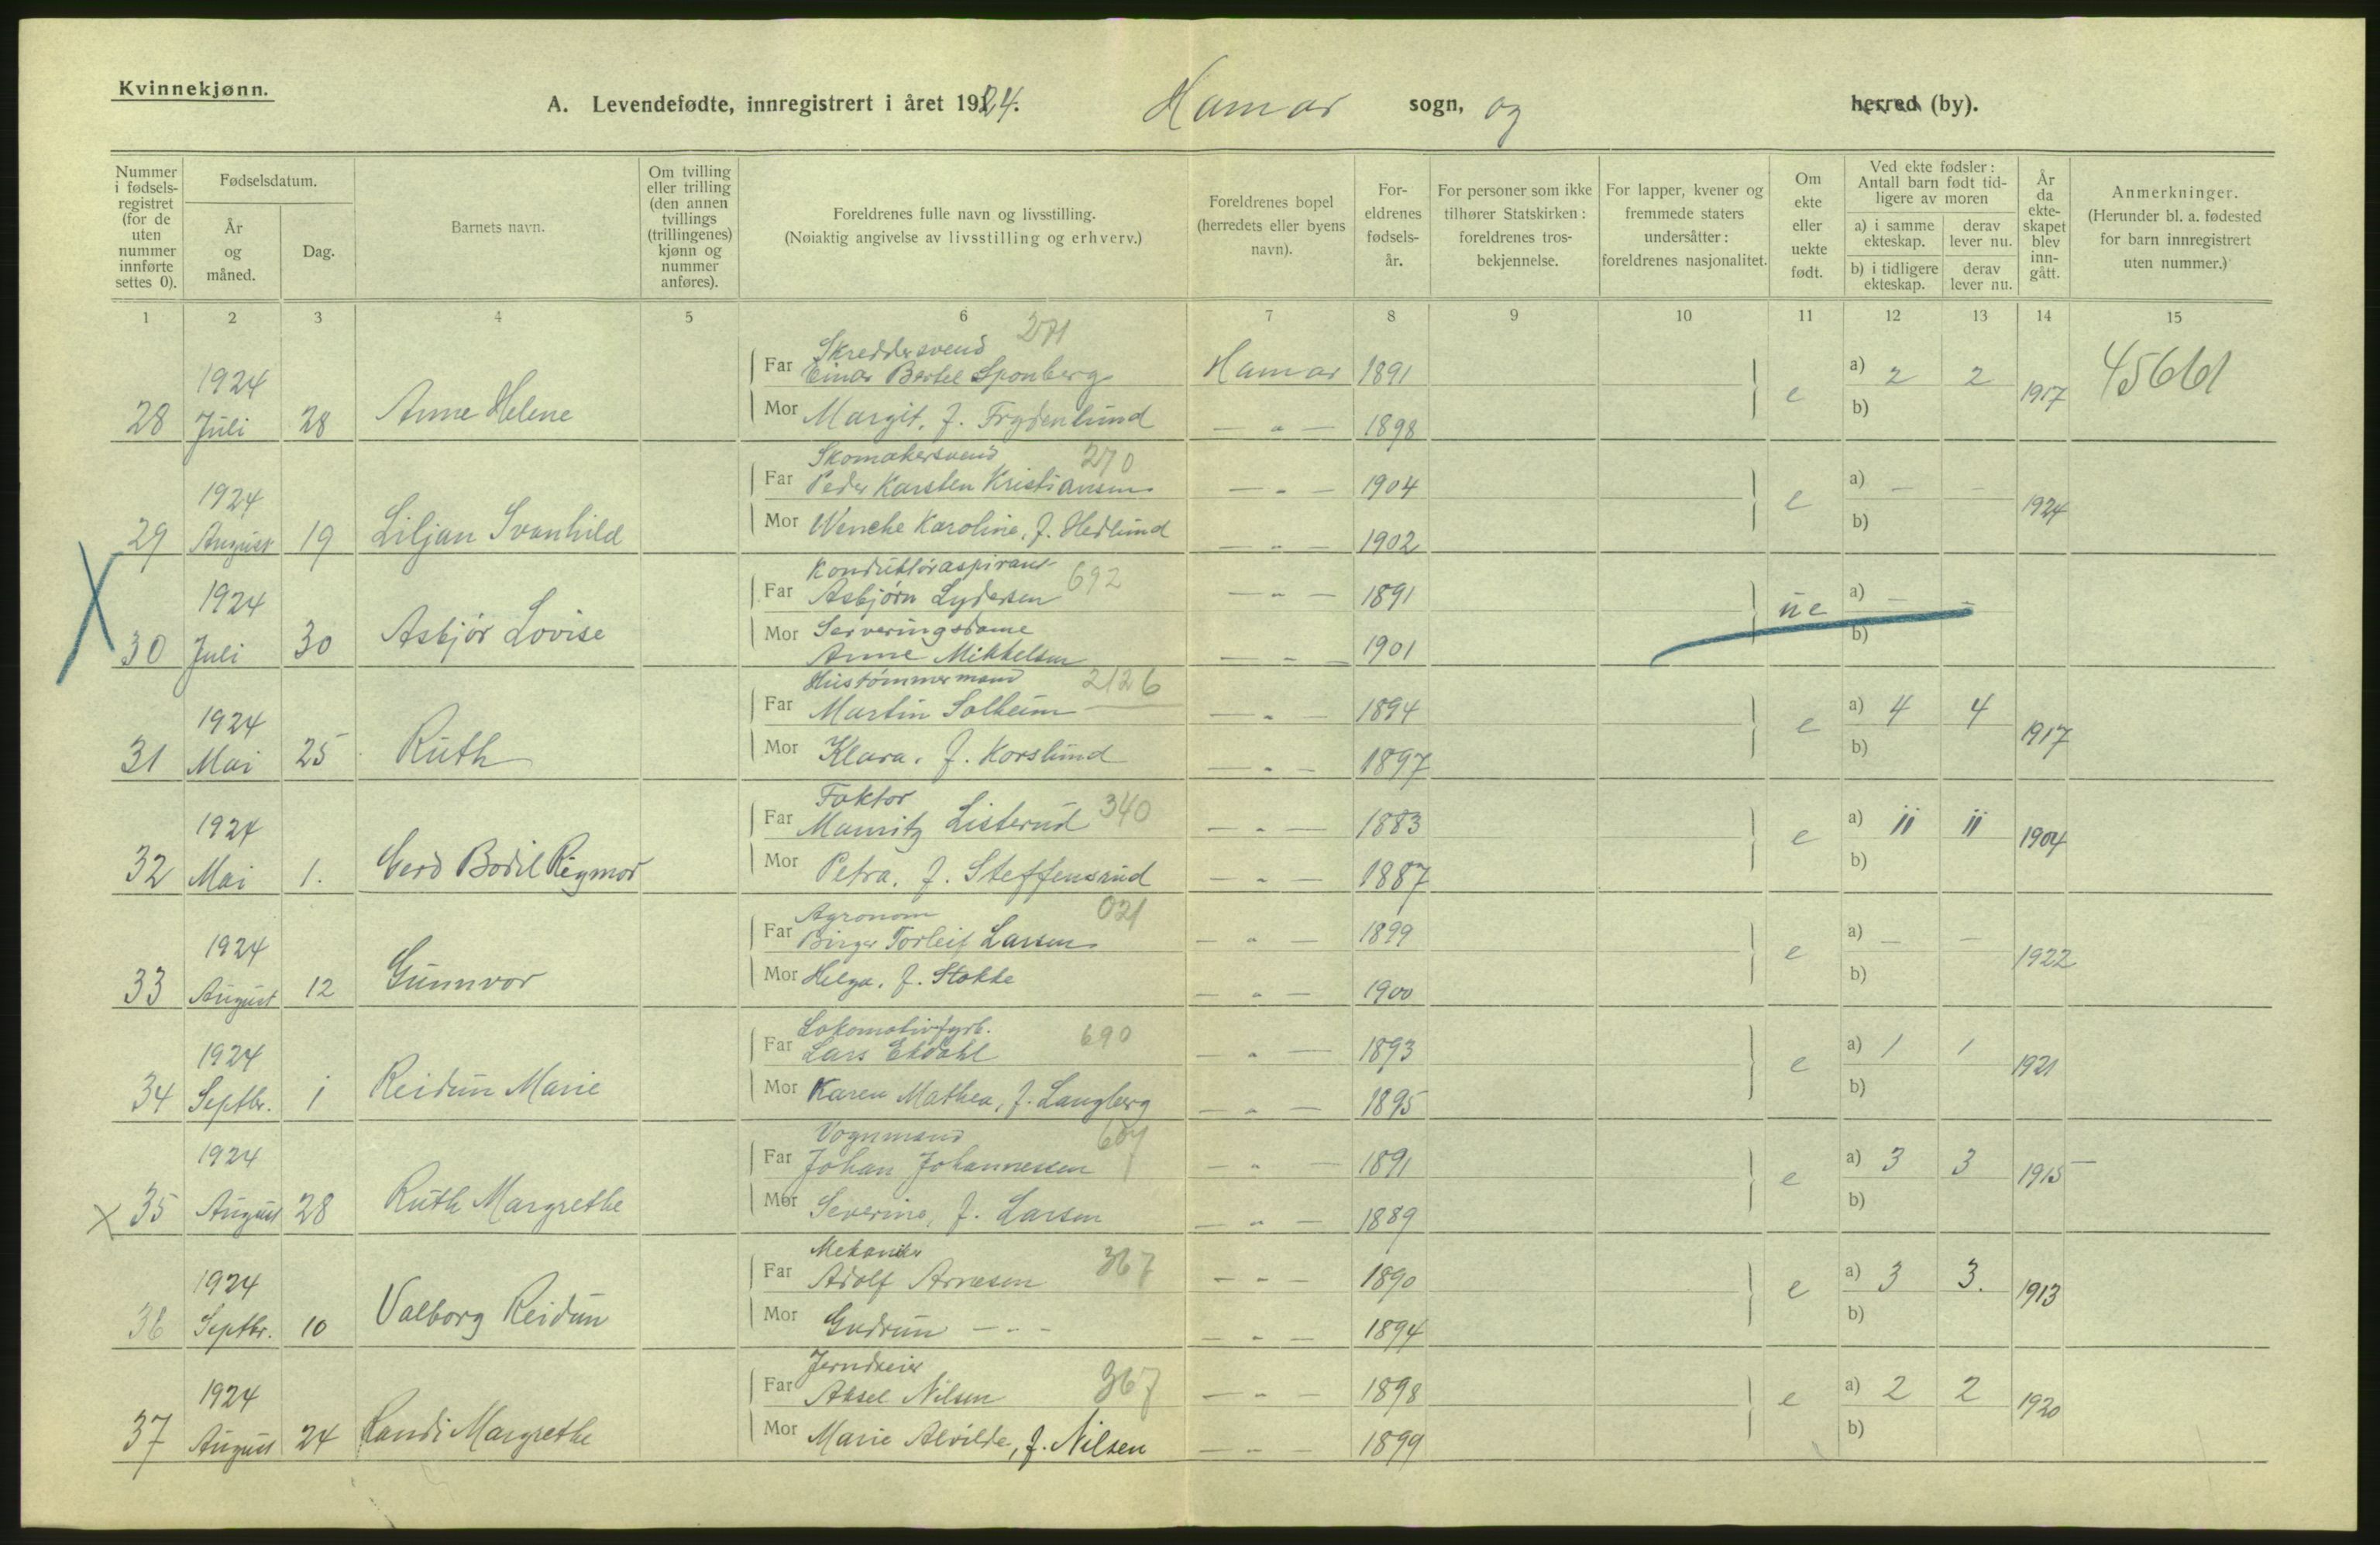 Kvinnekjønn.
A. Levendefødte, innregistrert i året 1924. Hamar sogn, og herred (by).
Nummer i fødselsregistret (for de uten nummer innførte settes 0).
Fødselsdatum.
År og måned.
Dag.
Barnets navn.
Om tvilling eller trilling (den annen tvillings (trillingenes) kjønn og nummer anføres).
Foreldrenes fulle navn og livsstilling.
(Nøiaktig angivelse av livsstilling og erhverv.)
Foreldrenes bopel (herredets eller byens navn).
Foreldrenes fødselsår.
For personer som ikke tilhører Statskirken: foreldrenes trosbekjennelse.
For lapper, kvener og fremmede staters undersåtter: foreldrenes nasjonalitet.
Om ekte eller uekte født.
Ved ekte fødsler: Antall barn født tidligere av moren
a) i samme ekteskap. derav lever nu.
b) i tidligere ekteskap. derav lever nu.
År da ekteskapet blev inngått.
Anmerkninger.
(Herunder bl. a. fødested for barn innregistrert uten nummer.)
1 2 3 4 5 6 7 8 9 10 11 12 13 14 15
Skreddersvend 271
1924 Far Einar Bertel Sponberg Hamar 1891 a) 2 2
28 Juli 28 Anne Helene Mor Margit, f. Frydenlund — " — 1898 e b) 1917 45661
Skomakersvend 270
1924 Far Peder Karsten Kristiansen — " — 1904 a) — —
29 August 19 Liljan Svanhild Mor Wenche Karoline, f. Hedlund — " — 1902 e b) 1924
Konduktøraspirant 692
1924 Far Asbjørn Lydersen — " — 1891 a) — —
30 Juli 30 Asbjør Lovise Mor Serveringsdame
Anne Mikkelsen — " — 1901 ue b)
Hustømmermand 2126
1924 Far Martin Solheim — " — 1894 a) 4 4
31 Mai 25 Ruth Mor Klara, f. Korslund — " — 1897 e b) 1917
Faktor
1924 Far Mauritz Listerud 340 — " — 1883 a) 11 11
32 Mai 1. Gerd Bodil Rigmor Mor Petra, f. Steffensrud — " — 1887 e b) 1904
Agronom 021
1924 Far Birger Torleif Larsen — " — 1899 a) — —
33 August 12 Gunnvor Mor Helga, f. Stokke — " — 1900 e b) 1922
Lokomotivfyrb. 690
1924 Far Lars Ekdahl — " — 1893 a) 1 1
34 Septbr. 1 Reidun Marie Mor Karen Mathea, f. Langberg — " — 1895 e b) 1921
Vognmand
1924 Far Johan Johannessen — " — 1891 a) 3 3
35 August 28 Ruth Margrethe Mor Severine, f. Larsen — " — 1889 e b) 1915
Mekaniker 367
1924 Far Adolf Arnesen — " — 1890 a) 3 3.
36 Septbr. 10 Valborg Reidun Mor Gudrun — " — — " — 1894 e b) 1913
Jerndreier 367
1924 Far Aksel Nilsen — " — 1898 a) 2 2
37 August 24 Randi Margrethe Mor Marie Alvilde, f. Nilsen — " — 1899 e b) 1920